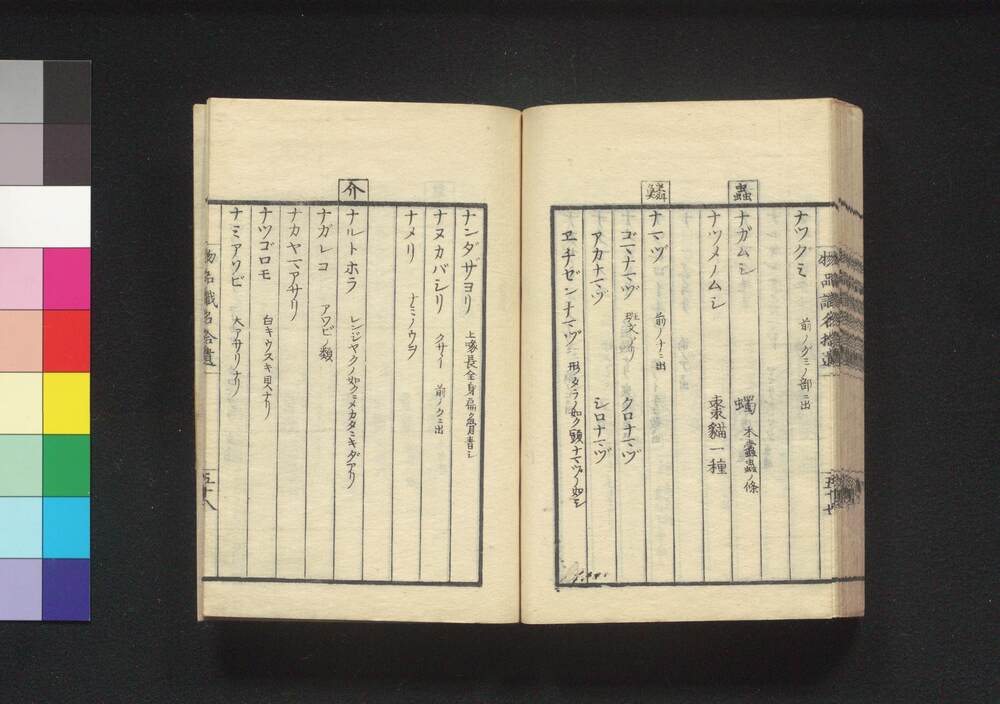 物品識名拾遺
五十七
ナツグミ 前ノグミノ部ニ出
蟲
ナガムシ 蠋 木蠹蟲ノ條
ナツメノムシ 棗貓一種
鱗
ナマヅ 前ノナニ出
ゴマナマヅ 斑文アリ クロナマヅ
アカナマヅ シロナマヅ
ヱチゼンナマヅ 形タラノ如ク頭ナマヅノ如シ
ナンダザヨリ 上喙長全身扁ク骨青シ
ナヌカバシリ クサイ 前ノクニ出
ナメリ ナミノウヲ
介
ナルトホラ レンジヤクノ如クメカタニキダアリ
ナガレコ アワビノ類
ナカヤマアサリ
ナツゴロモ 白キウスキ貝ナリ
ナミアワビ 大アサリノナリ
物品識名拾遺
五十八